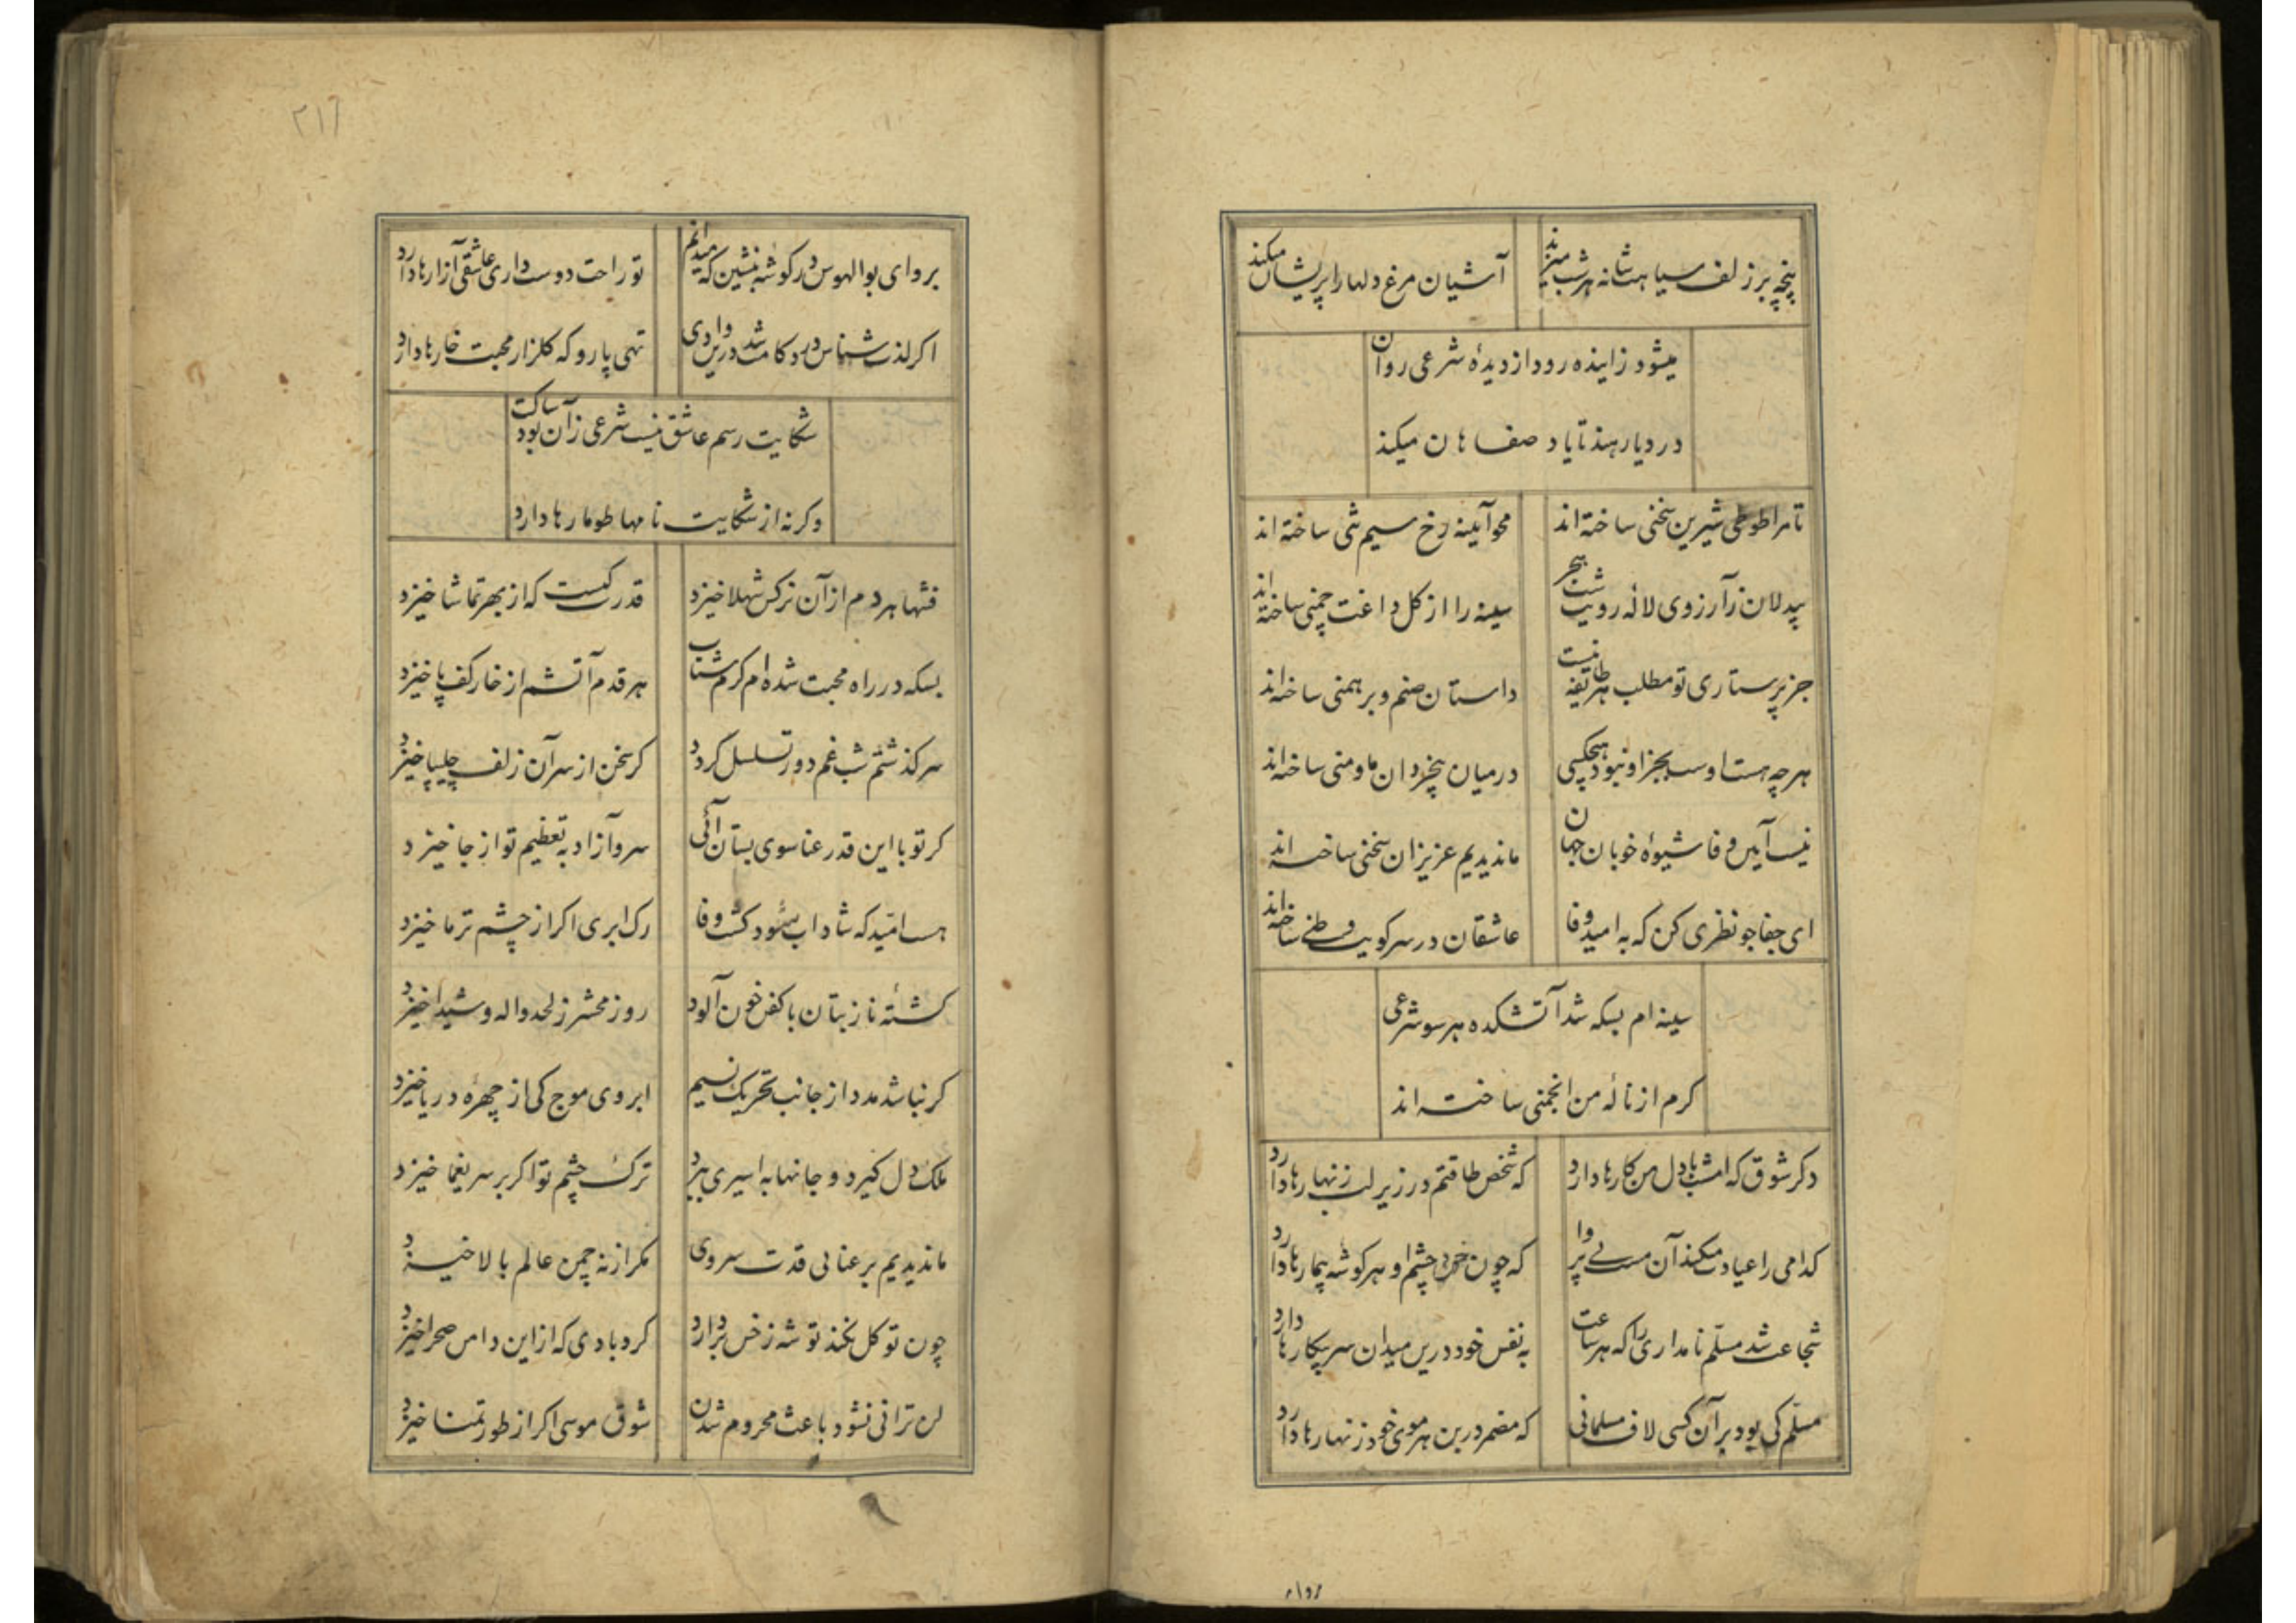 پنجه بر زلف سیاهت شانه هر شب میزند
آشیان مرغ دلها را پریشان میکند
میشود زاینده رود از دیدهٔ شرعی روان
در دیار هند تا یاد صفاهان میکند
تا مرا طوطی شیرین سخنی ساخته اند
محو آیینه رخ سیم تنی ساخته اند
بیدلان زآرزوی لاله رویت شب هجر
سینه را از کل داغت چمنی ساخته اند
جز پرستاری تو مطلب هر طایفه نیست
داستان صنم و برهمنی ساخته اند
هر چه هست اوست بجز او نبود هیچکسی
در میان بیخردان ما و منی ساخته اند
نیست آیین وفا شیوهٔ خوبان جهان
ما ندیدیم عزیزان سخنی ساخته اند
ای جفا جو نظری کن که به امید وفا
عاشقان در سر کویت وطنی ساخته اند
سینه ام بسکه شد آتشکده هر سو شرعی
کرم از نالهٔ من انجمنی ساخته اند
دکر شوق که امشب با دل من کارها دارد
که شخص طاقتم در زیر لب زنهارها دارد
کدامی را عیادت میکند آن مست بی پروا
که چون خود چشم او هر کوشه بیمارها دارد
شجاعت شد مسلّم نامداری را که هر ساعت
به نفس خود درین میدان سر پیکارها دارد
مسلّم کی بود بر آن کسی لاف مسلمانی
که مضمر در بن هر موی خود زنهارها دارد
۲۱۶
برو ای بوالهوس در کوشه بنشین که میدانم
تو راحت دوست داری عاشقی آزارها دارد
اکر لذت شناس درد کامت شد درین وادی
تهی پا رو که کلزار محبت خارها دارد
شکایت رسم عاشق نیست شرعی زآن بود ساکت
وکرنه از شکایت نامها طومارها دارد
فتنها هر دم از آن نرکس شهلا خیزد
قدرت کیست که از بهر تماشا خیزد
بسکه در راه محبت شده ام کرم شتاب
هر قدم آتشم از خار کف پا خیزد
سرکذشتم شب غم دور تسلسل کردد
کر سخن از سر آن زلف چلیپا خیزد
کر تو با این قد رعنا سوی بستان آئی
سرو آزاد به تعظیم تو از جا خیزد
هست امّید که شاداب شود کشت وفا
رک ابری اکر از چشم تر ما خیزد
کشتهٔ ناز بتان با کفن خون آلود
روز محشر ز لحد واله و شیدا خیزد
کر نباشد مدد از جانب تحریک نسیم
ابروی موج کی از چهرهٔ دریا خیزد
ملک دل کیرد و جانها به اسیری ببرد
ترک چشم تو اکر بر سر یغما خیزد
ما ندیدیم برعنایی قدت سروی
مکر از نه چمن عالم بالا خیزد
چون توکل نکند توشه ز خس بردارد
کردبادی که از این دامن صحرا خیزد
لن ترانی نشود باعث محروم شدن
شوق موسی اکر از طور تمنا خیزد